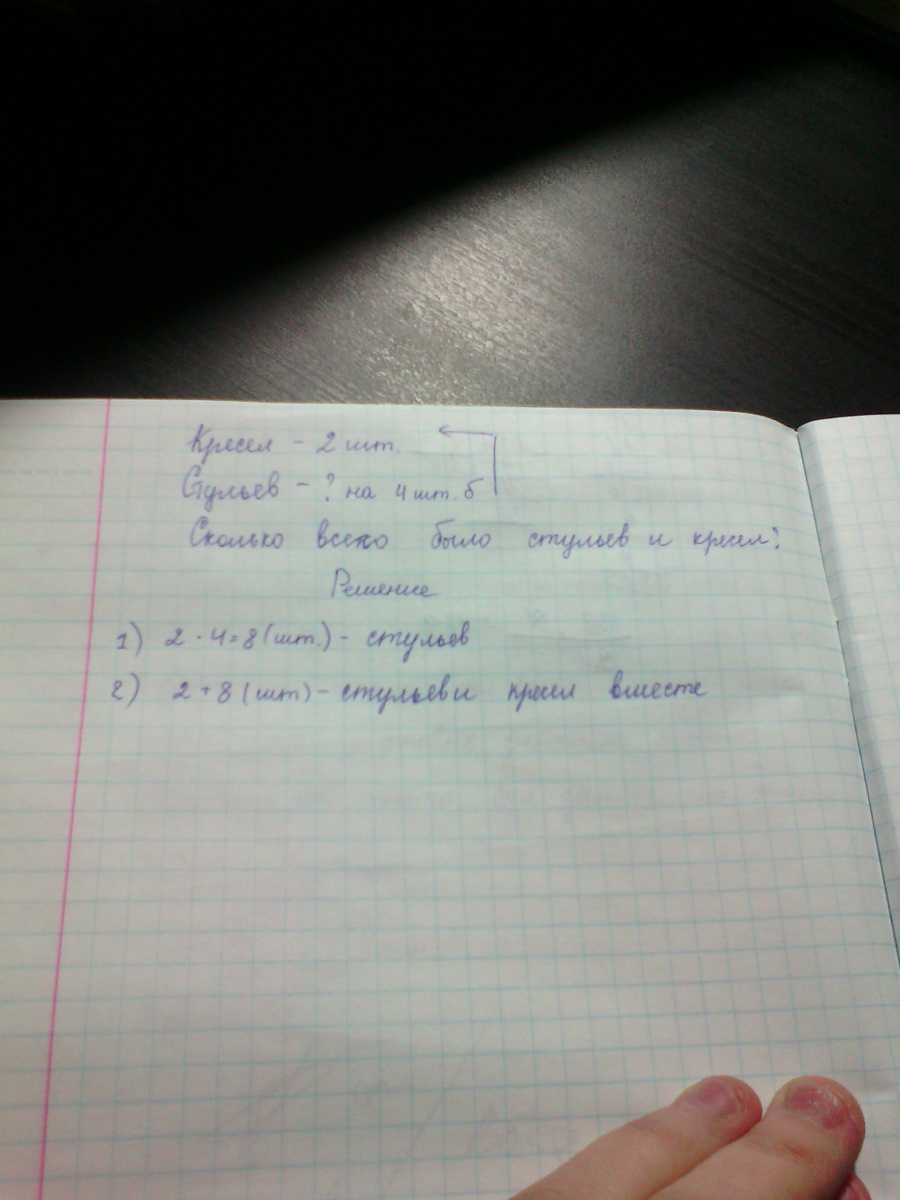 Кресел - 2 шт.
Стульев - ? на 4 шт. б
Сколько всего было стульев и кресел?
Решение
1) 2 · 4 = 8 (шт.) - стульев
2) 2 + 8 (шт) - стульев и кресел вместе